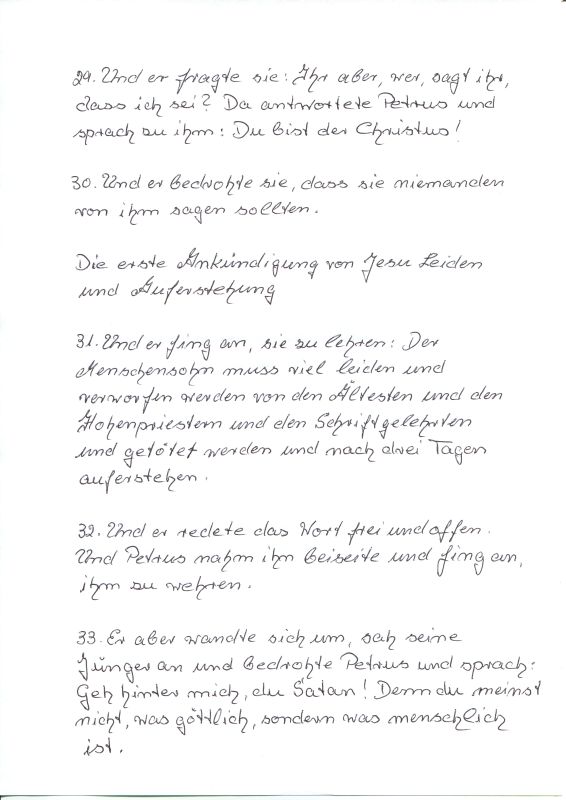 29. Und er fragte sie: Ihr aber, wer, sagt ihr,
dass ich sei? Da antwortete Petrus und
sprach zu ihm: Du bist der Christus!
30. Und er bedrohte sie, dass sie niemanden
von ihm sagen sollten.
Die erste Ankündigung von Jesu Leiden
und Auferstehung
31. Und er fing an, sie zu lehren: Der
Menschensohn muss viel leiden und
verworfen werden von den Ältesten und den
Hohenpriestern und den Schriftgelehrten
und getötet werden und nach drei Tagen
auferstehen.
32. Und er redete das Wort frei und offen.
Und Petrus nahm ihn beiseite und fing an,
ihm zu wehren.
33. Er aber wandte sich um, sah seine
Jünger an und bedrohte Petrus und sprach:
Geh hinter mich, du Satan! Denn du meinst
nicht, was göttlich, sondern was menschlich
ist.